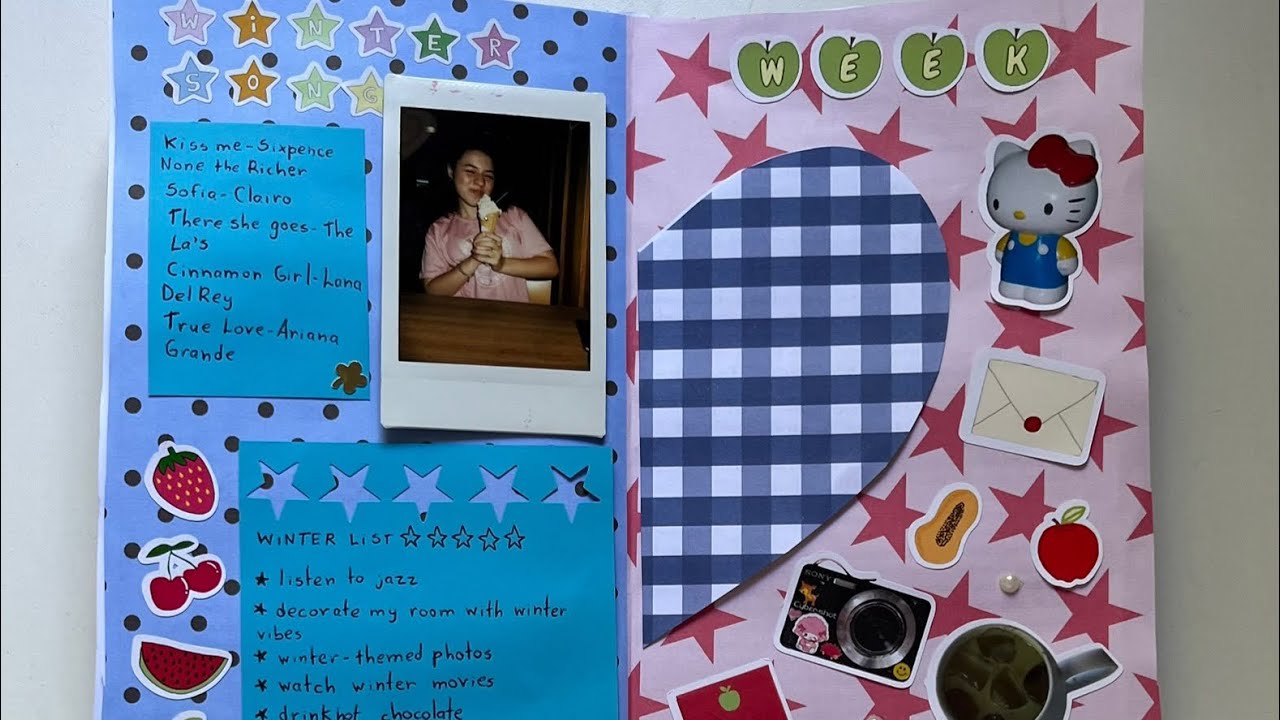 WiNTER
SONG
Kiss me-Sixpence
None the Richer
Sofia-Clairo
There she goes-The
La's
Cinnamon Girl-Lana
Del Rey
True Love-Ariana
Grande
WINTER LIST
listen to jazz
decorate my room with winter
vibes
winter-themed photos
watch winter movies
drink hot chocolate
WEEK
SONY
Cyber-shot